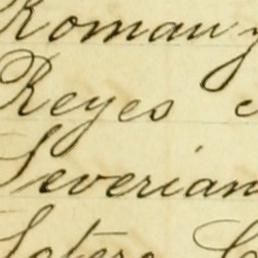 Roman y
Reyes
Severian
Sotero